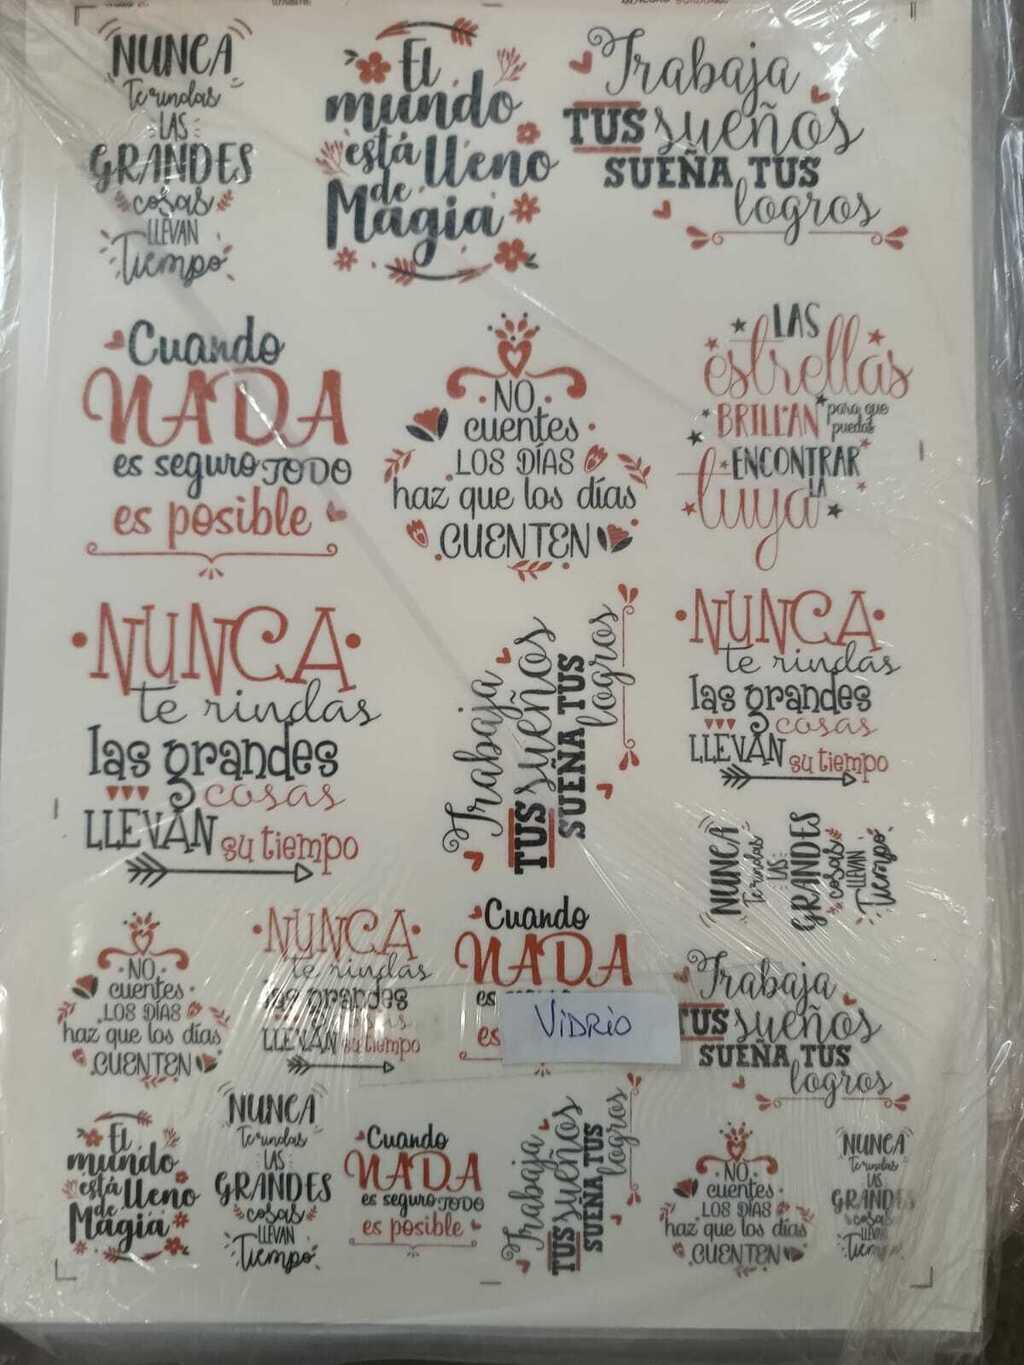 NUNCA
Te rindas
LAS
GRANDES
cosas
LLEVAN
Tiempo
El
mundo
está lleno
de
Magia
Trabaja
TUS sueños
SUEÑA TUS
logros
Cuando
NADA
es seguro TODO
es posible
NO
cuentes
LOS DÍAS
haz que los días
CUENTEN
LAS
estrellas
BRILLAN para que
puedas
ENCONTRAR
LA
tuya
NUNCA
te rindas
las grandes
cosas
LLEVAN su tiempo
Trabaja
TUS sueños
SUEÑA TUS
logros
NUNCA
te rindas
las grandes
cosas
LLEVAN su tiempo
NUNCA
Te rindas
LAS
GRANDES
cosas
LLEVAN
Tiempo
NO
cuentes
LOS DÍAS
haz que los días
CUENTEN
NUNCA
te rindas
las grandes
cosas
LLEVAN su tiempo
Cuando
NADA
es
es
VIDRIO
Trabaja
TUS sueños
SUEÑA TUS
logros
El
mundo
está lleno
de
Magia
NUNCA
Te rindas
LAS
GRANDES
cosas
LLEVAN
Tiempo
Cuando
NADA
es seguro TODO
es posible
Trabaja
TUS sueños
SUEÑA TUS
logros
NO
cuentes
LOS DÍAS
haz que los días
CUENTEN
NUNCA
Te rindas
LAS
GRANDES
cosas
LLEVAN